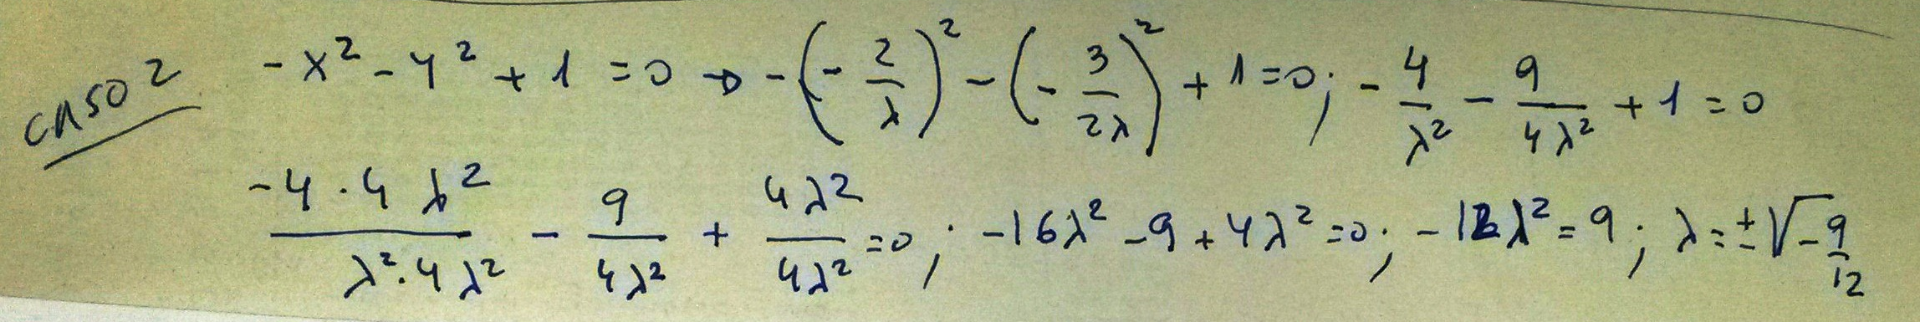 CASO 2 -x² - y² + 1 = 0 → -(-2/λ)² - (-3/2λ)² + 1 = 0; -4/λ² - 9/4λ² + 1 = 0
-4·4λ²/λ²·4λ² - 9/4λ² + 4λ²/4λ² = 0; -16λ² - 9 + 4λ² = 0; -12λ² = 9; λ = ±√-9/12